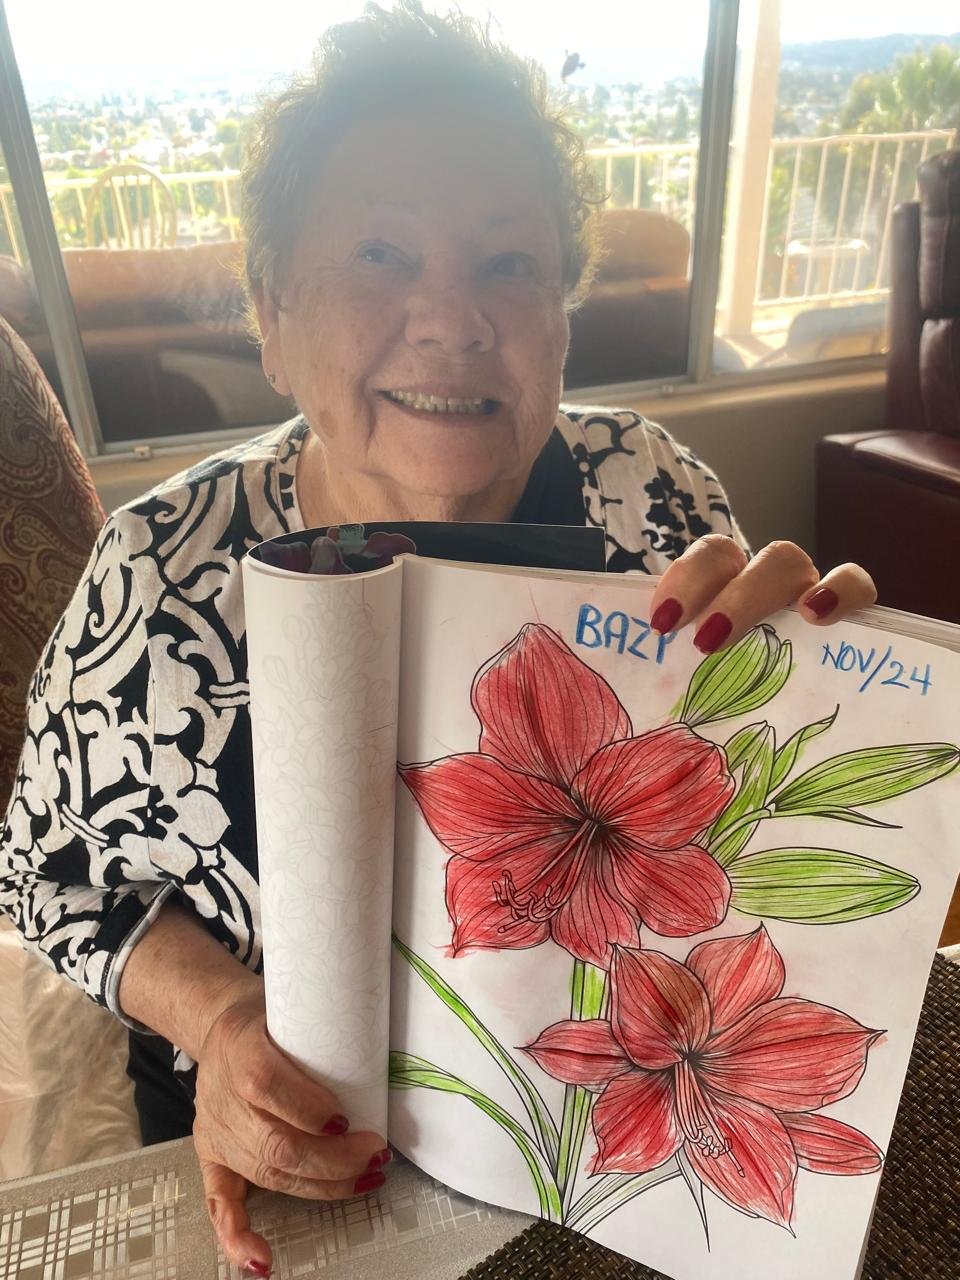 BAZY
NOV/24